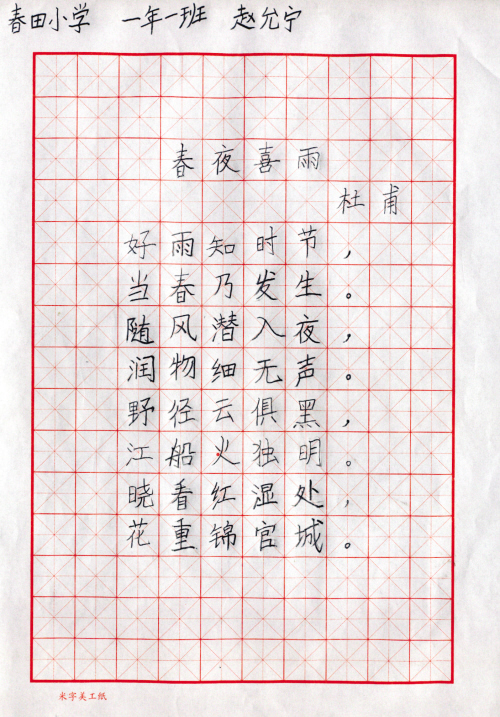 春田小学 一年一班 赵允宁
春夜喜雨
杜甫
好雨知时节，
当春乃发生。
随风潜入夜，
润物细无声。
野径云俱黑，
江船火独明。
晓看红湿处，
花重锦官城。
米字美工纸